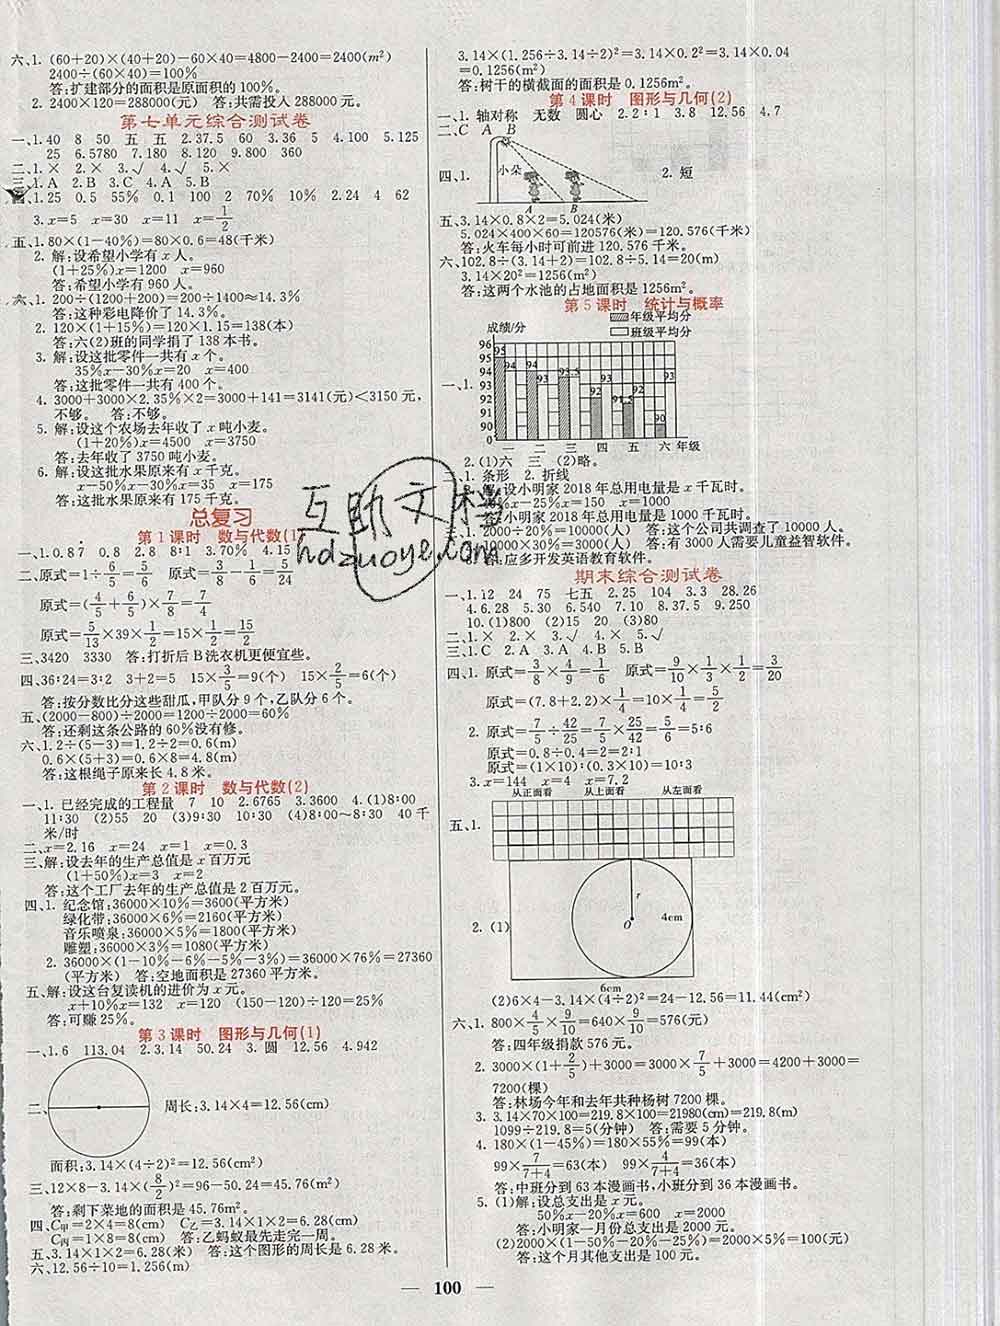 六、1. (60+20)×(40+20)-60×40=4800-2400=2400(m²)
2400÷(60×40)=100%
答:扩建部分的面积是原面积的100%。
2. 2400×120=288000(元) 答:共需投入 288000元。
第七单元综合测试卷
一、1. 40 8 50 五 五 2. 37.5 60 3. 36 5 4. 100 5. 125
25 6. 5780 7. 180 8. 120 9. 800 360
二、1. × 2. × 3. √ 4. √ 5. ×
三、1. A 2. B 3. C 4. A 5. B
四、1. 25 0.5 55% 0.1 100 2 70% 10% 2. 24 4 62
3. x=5 x=30 x=11 x=1/2
五、1. 80×(1-40%)=80×0.6=48(千米)
2. 解:设希望小学有 x 人。
(1+25%)x=1200 x=960
答:希望小学有 960 人。
六、1. 200÷(1200+200)=200÷1400≈14.3%
答:这种彩电降价了 14.3%。
2. 120×(1+15%)=120×1.15=138(本)
答:六(2)班的同学捐了 138 本书。
3. 解:设这批零件一共有 x 个。
35%x-30%x=20 x=400
答:这批零件一共有 400 个。
4. 3000+3000×2.35%×2=3000+141=3141(元)<3150元,
不够。 答:不够。
5. 解:设这个农场去年收了 x 吨小麦。
(1+20%)x=4500 x=3750
答:去年收了 3750 吨小麦。
6. 解:设这批水果原来有 x 千克。
x-50%x-30%x=35 x=175
答:这批水果原来有 175 千克。
总复习
第 1 课时 数与代数(1)
一、1. 0.87 0.8 2. 8 8:1 3. 70% 4. 15
二、原式=1÷6/5=5/6 原式=3/8-1/6=5/24
原式=(4/5+6/5)×7/8=7/4
原式=5/13×39×1/2=15×1/2=15/2
三、3420 3330 答:打折后 B 洗衣机更便宜些。
四、36:24=3:2 3+2=5 15×3/5=9(个) 15×2/5=6(个)
答:按分数比分这些甜瓜,甲队分 9 个,乙队分 6 个。
五、(2000-800)÷2000=1200÷2000=60%
答:还剩这条公路的 60%没有修。
六、1.2÷(5-3)=1.2÷2=0.6(m)
0.6×(5+3)=0.6×8=4.8(m)
答:这根绳子原来长 4.8 米。
第 2 课时 数与代数(2)
一、1. 已经完成的工程量 7 10 2. 6765 3. 3600 4. (1)8:00
11:30 (2)55 20 (3)9:30 10:30 (4)8:00~8:30 40 千
米/时
二、x=2.16 x=24 x=1 x=0.3
三、解:设去年的生产总值是 x 百万元
(1+50%)x=3 x=2
答:这个工厂去年的生产总值是 2 百万元。
四、1. 纪念馆:36000×10%=3600(平方米)
绿化带:36000×6%=2160(平方米)
音乐喷泉:36000×5%=1800(平方米)
雕塑:36000×3%=1080(平方米)
2. 36000×(1-10%-6%-5%-3%)=36000×76%=27360
(平方米) 答:空地面积是 27360 平方米。
五、解:设这台复读机的进价为 x 元。
x+10%x=132 x=120 (150-120)÷120=25%
答:可赚 25%。
第 3 课时 图形与几何(1)
一、1. 6 113.04 2. 3.14 50.24 3. 圆 12.56 4. 942
二、 周长:3.14×4=12.56(cm)
面积:3.14×(4÷2)²=12.56(cm²)
三、12×8-3.14×(8/2)²=96-50.24=45.76(m²)
答:剩下菜地的面积是 45.76m²。
四、C甲=2×4=8(cm) C乙=3.14×1×2=6.28(cm)
C丙=1×8=8(cm) 答:乙蚂蚁最先走完一周。
五、3.14×1×2=6.28(米) 答:这个图形的周长是 6.28 米。
六、12.56÷10=1.256(m)
3.14×(1.256÷3.14÷2)²=3.14×0.2²=3.14×0.04
=0.1256(m²)
答:树干的横截面的面积是 0.1256m²。
第 4 课时 图形与几何(2)
一、1. 轴对称 无数 圆心 2. 2:1 3. 8 12.56 4. 7
二、C A B
四、1. 小朵 A B 2. 短
五、3.14×0.8×2=5.024(米)
5.024×400×60=120576(米)=120.576(千米)
答:火车每小时可前进 120.576 千米。
六、102.8÷(3.14+2)=102.8÷5.14=20(m)
3.14×20²=1256(m²)
答:这两个水池的占地面积是 1256m²。
第 5 课时 统计与概率
成绩/分 年级平均分
班级平均分
一、1.
96 95 94 93 92 91 90 0
95 94 94 93 93.5 93 92 92 91.5 92 90 93
一 二 三 四 五 六 年级
2. (1)六 三 (2)略。
二、1. 条形 2. 折线
解:设小明家 2018 年总用电量是 x 千瓦时。
40%x-25%x=150 x=1000
答:小明家 2018 年总用电量是 1000 千瓦时。
1. 2000÷20%=10000(人) 答:这个公司共调查了 10000 人。
10000×30%=3000(人) 答:有 3000 人需要儿童益智软件。
答:应多开发英语教育软件。
期末综合测试卷
一、1. 12 24 75 七五 2. 25 104 3. 3 28.26
4. 6.28 5. 30 6. 540 7. 10 8. 37.5 9. 250
10. (1)800 (2)15 20 (3)80
二、1. × 2. × 3. √ 4. × 5. √
三、1. C 2. A 3. A 4. B 5. B
四、1. 原式=3/8×4/9=1/6 原式=9/10×1/3×1/2=3/20
原式=(7.8+2.2)×1/4=10×1/4=5/2
2. 原式=7/5÷42/25=7/5×25/42=5/6=5:6
原式=0.8÷0.4=2=2:1
原式=(1×10):(0.3×10)=10:3
3. x=144 x=4 x=7.2
从正面看 从上面看 从左面看
五、1.
2. (1) r O 4cm
6cm
(2)6×4-3.14×(4÷2)²=24-12.56=11.44(cm²)
六、1. 800×4/5×9/10=640×9/10=576(元)
答:四年级捐款 576 元。
2. 3000×(1+2/5)+3000=3000×7/5+3000=4200+3000=
7200(棵)
答:林场今年和去年共种杨树 7200 棵。
3. 3.14×70×100=219.8×100=21980(cm)=219.8(m)
1099÷219.8=5(分钟) 答:需要 5 分钟。
4. 180×(1-45%)=180×55%=99(本)
99×7/7+4=63(本) 99×4/7+4=36(本)
答:中班分到 63 本漫画书,小班分到 36 本漫画书。
5. (1)解:设总支出是 x 元。
50%x-20%x=600 x=2000
答:小明家一月份总支出是 2000 元。
(2)2000×(1-50%-20%-25%)=2000×5%=100(元)
答:这个月其他支出是 100 元。
互助文档
hdzuoye.com
100